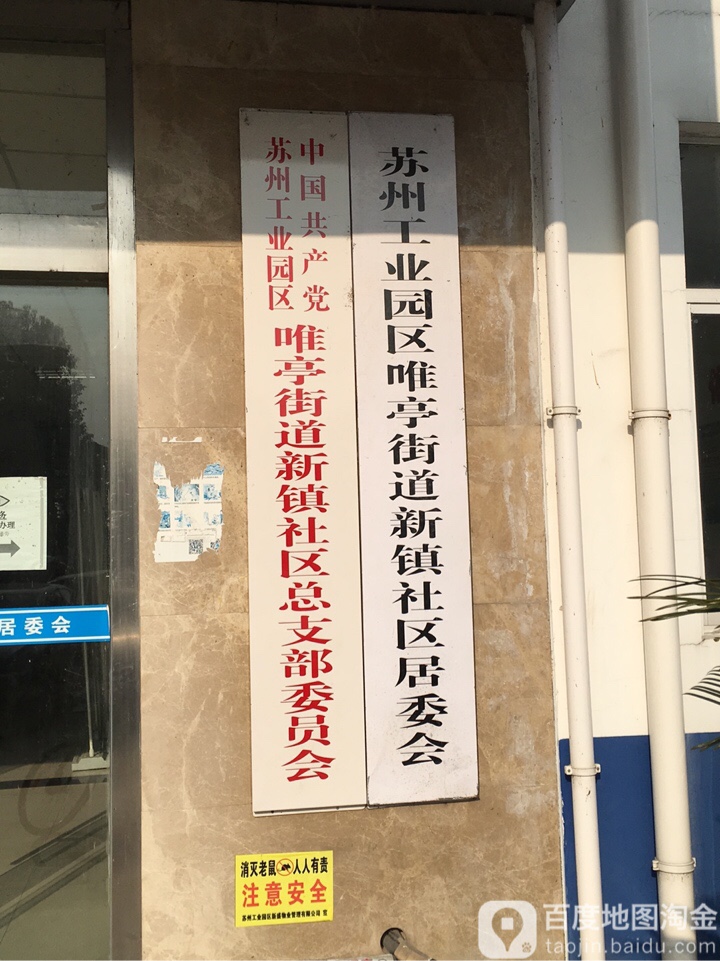 中国共产党
苏州工业园区
唯亭街道新镇社区总支部委员会
苏州工业园区唯亭街道新镇社区居委会
办理
居委会
消灭老鼠 人人有责
注意安全
苏州工业园区新盛物业管理有限公司 宣
百度地图淘金
taojin.baidu.com